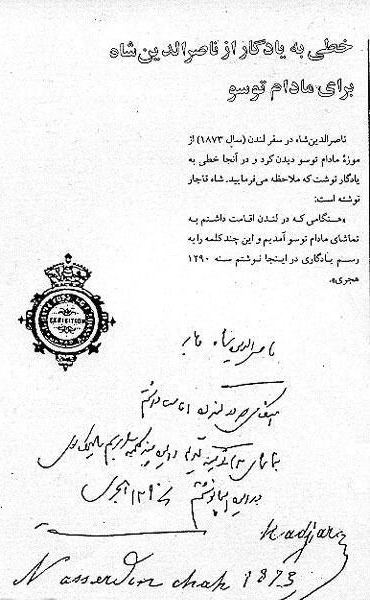 خطی به یادگار از ناصرالدین شاه
برای مادام توسو
ناصرالدین‌شاه در سفر لندن (سال ۱۸۷۳) از
موزهٔ مادام توسو دیدن کرد و در آنجا خطی به
یادگار نوشت که ملاحظه می‌فرمایید. شاه قاجار
نوشته است:
«هنگامی که در لندن اقامت داشتم به
تماشای مادام توسو آمدیم و این چند کلمه را به
رسم یادگاری در اینجا نوشتم سنه ۱۲۹۰
هجری».
EXHIBITION
ناصرالدین شاه
در لندن اقامت داشتم
این چند کلمه
در اینجا نوشتم ۱۲۹۰ هجری
Kadjar
Nasserdin chah 1873